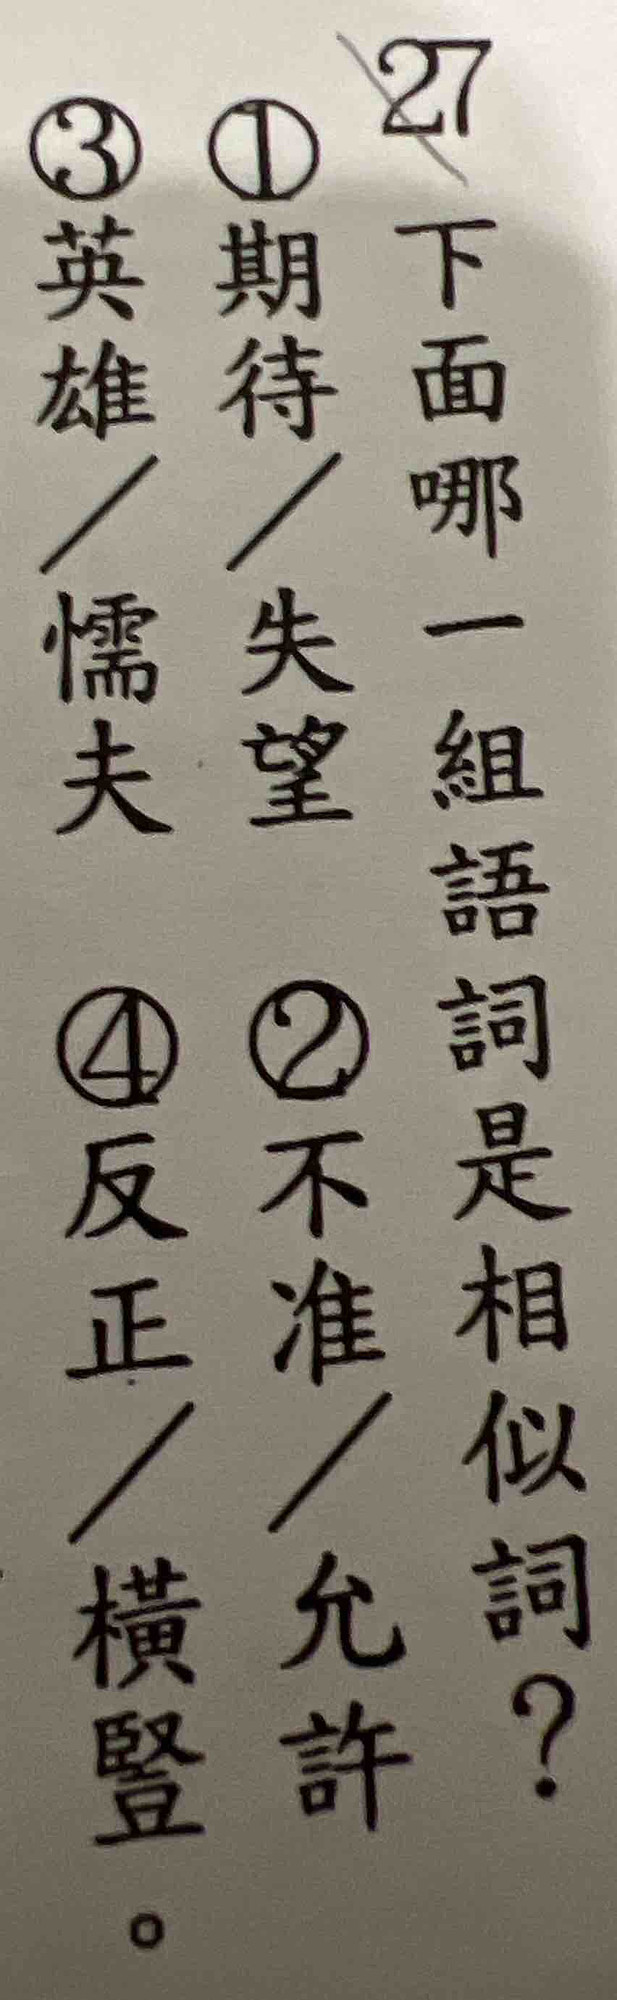 27 下面哪一組語詞是相似詞？
①期待／失望 ②不准／允許
③英雄／懦夫 ④反正／橫豎。